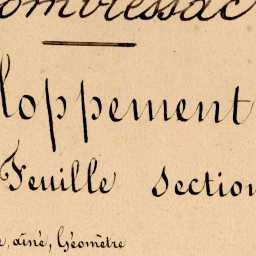 ombressac
loppement
Feuille Section
, aîné, Géomètre